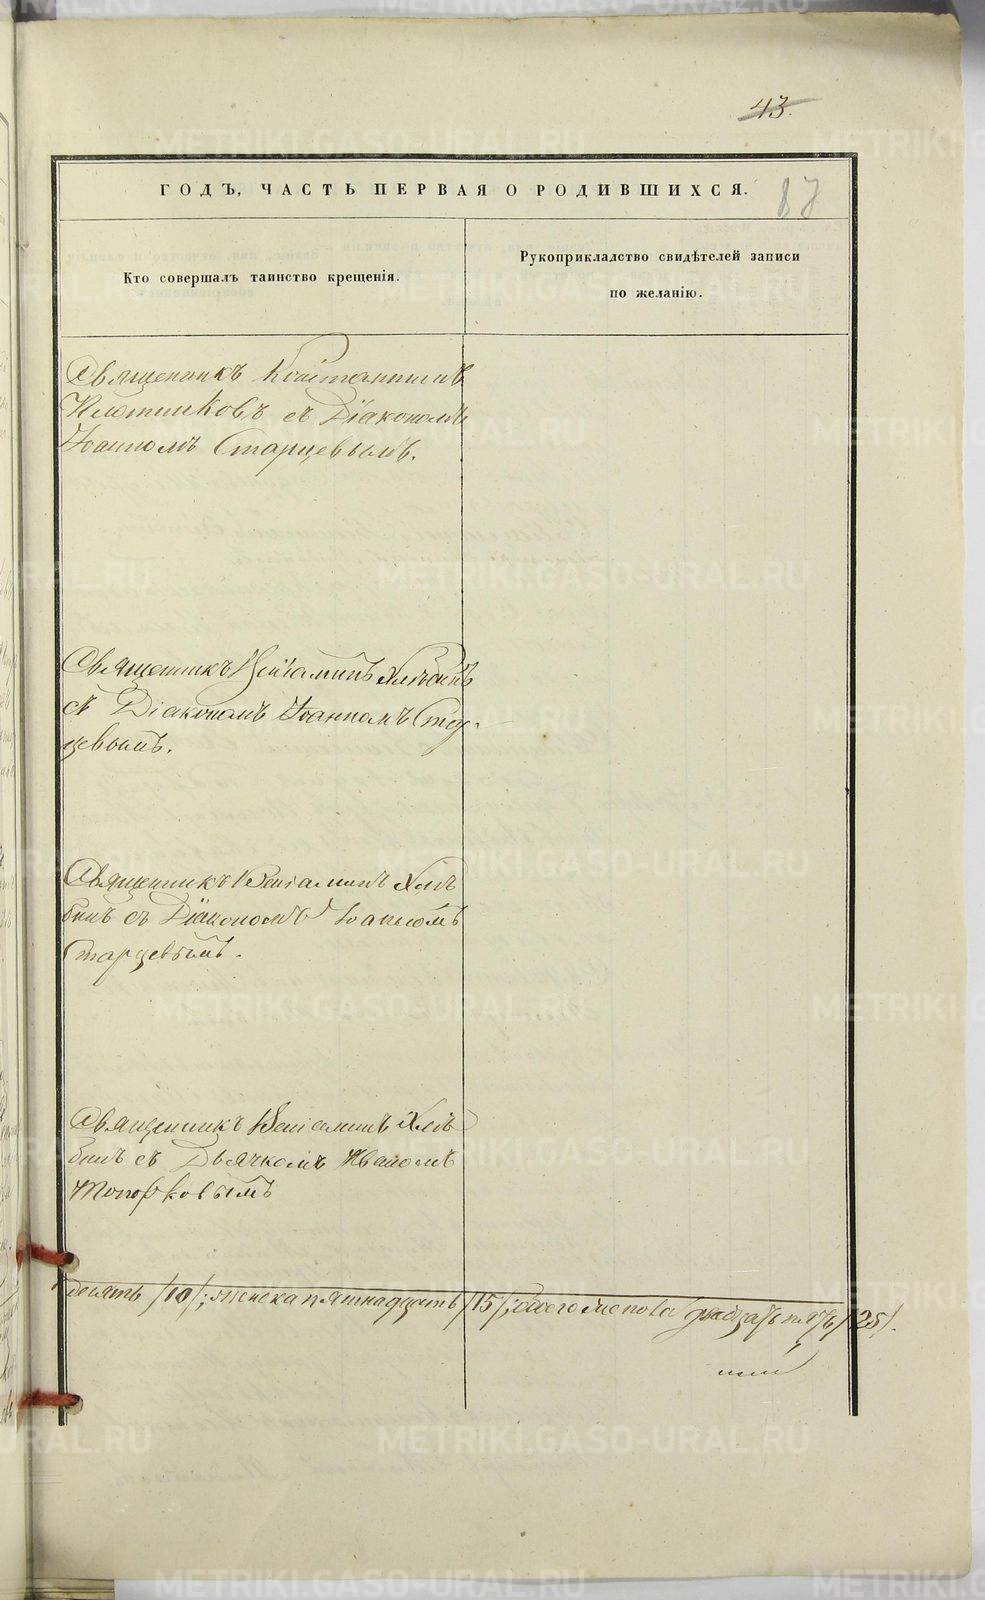 43.
ГОДЪ, ЧАСТЬ ПЕРВАЯ О РОДИВШИХСЯ.
87
Кто совершалъ таинство крещенія.
Рукоприкладство свидѣтелей записи
по желанію.
Священникъ Константинъ
Плотниковъ съ Діакономъ
Іоанномъ Старцевымъ.
Священникъ Веніаминъ Хлѣбинъ
съ Діакономъ Іоанномъ Стар-
цевымъ.
Священникъ Веніаминъ Хлѣ
бинъ съ Діакономъ Іоанномъ
Старцевымъ.
Священникъ Веніаминъ Хлѣ
бинъ съ Дьячкомъ Иваномъ
Топорковымъ
десять /10/; женска пятнадцать /15/; обоего пола двадцать пять /25/.
METRIKI.GASO-URAL.RU